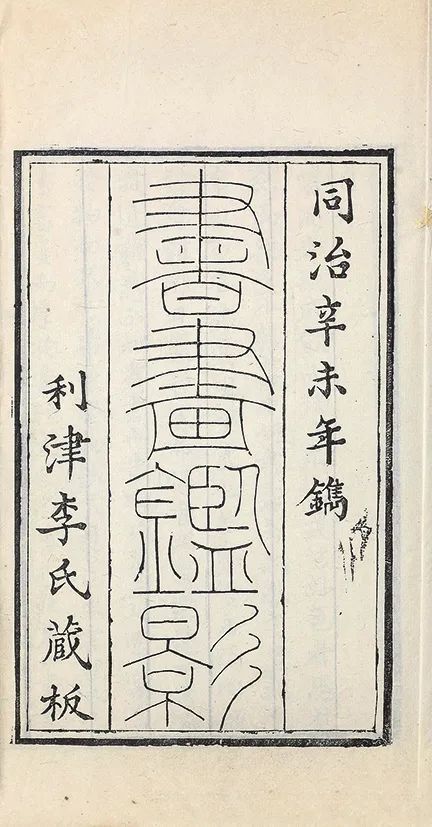 同治辛未年鐫
書畫鑑影
利津李氏藏板